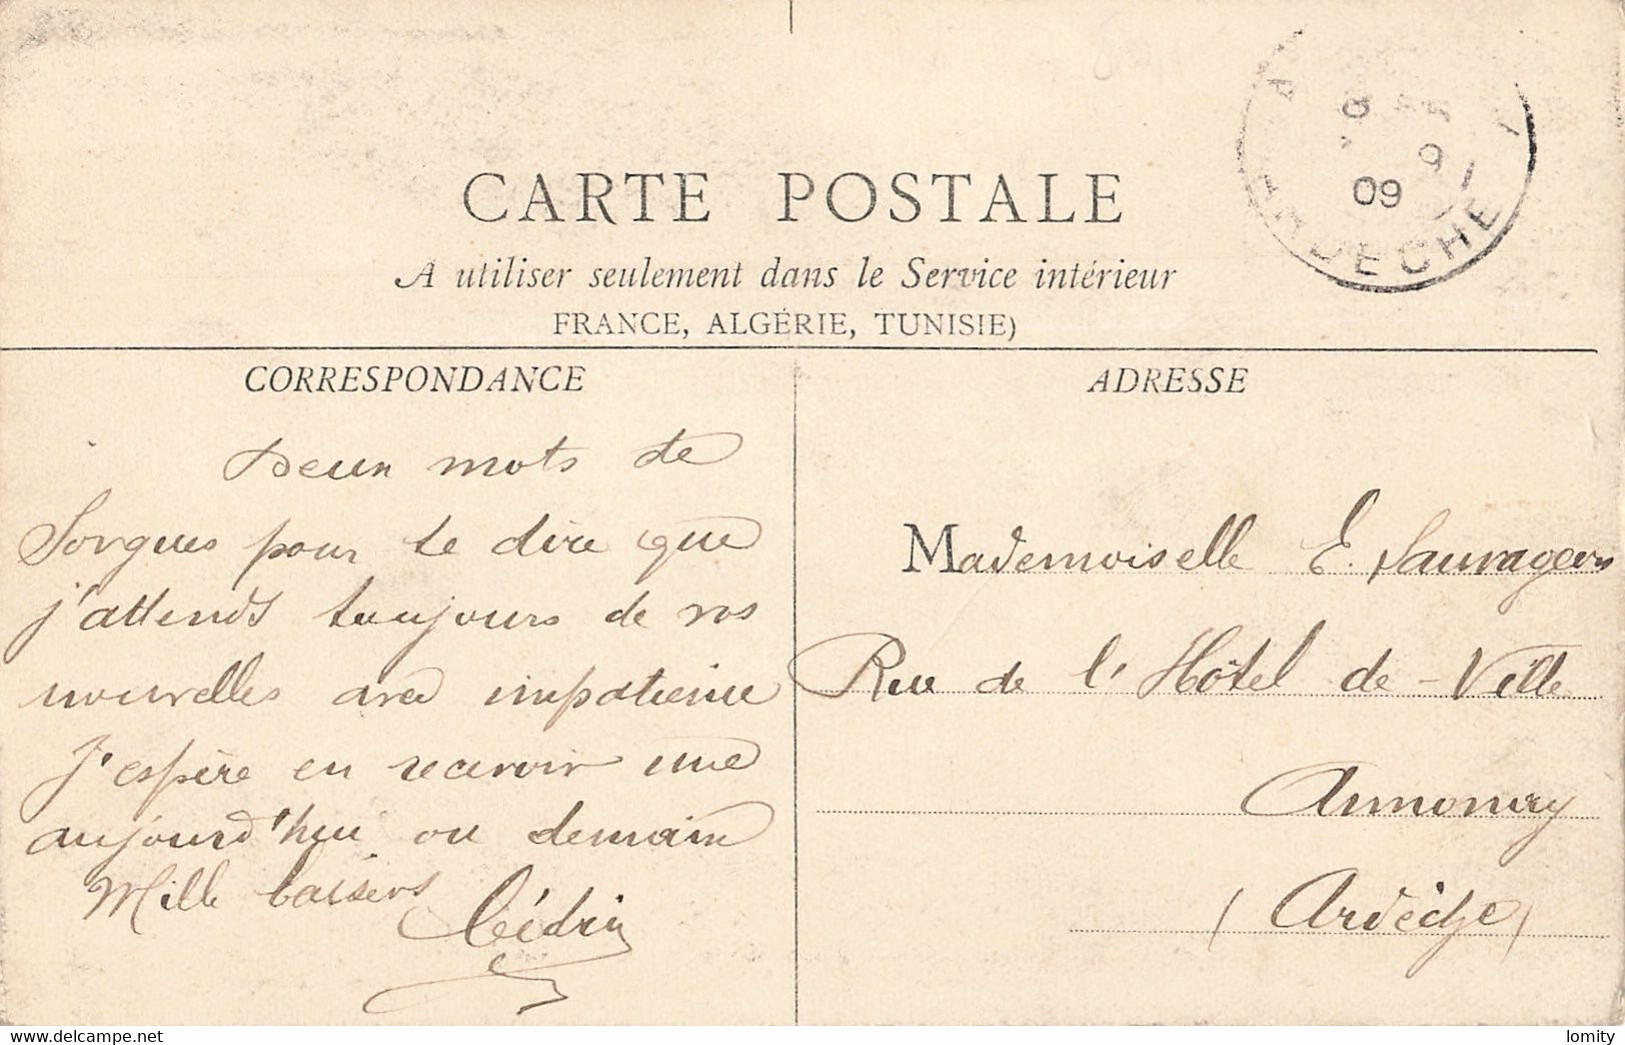 CARTE POSTALE
A utiliser seulement dans le Service intérieur
FRANCE, ALGÉRIE, TUNISIE)
09
ARDECHE
CORRESPONDANCE
Deux mots de
Sorgues pour te dire que
j'attends toujours de vos
nouvelles avec impatience
J'espère en recevoir une
aujourd'hui ou demain
Mille baisers
Cédrin
ADRESSE
Mademoiselle E. Sauvageon
Rue de l'Hôtel de-Ville
Annonay
(Ardèche)
www.delcampe.net
lomity